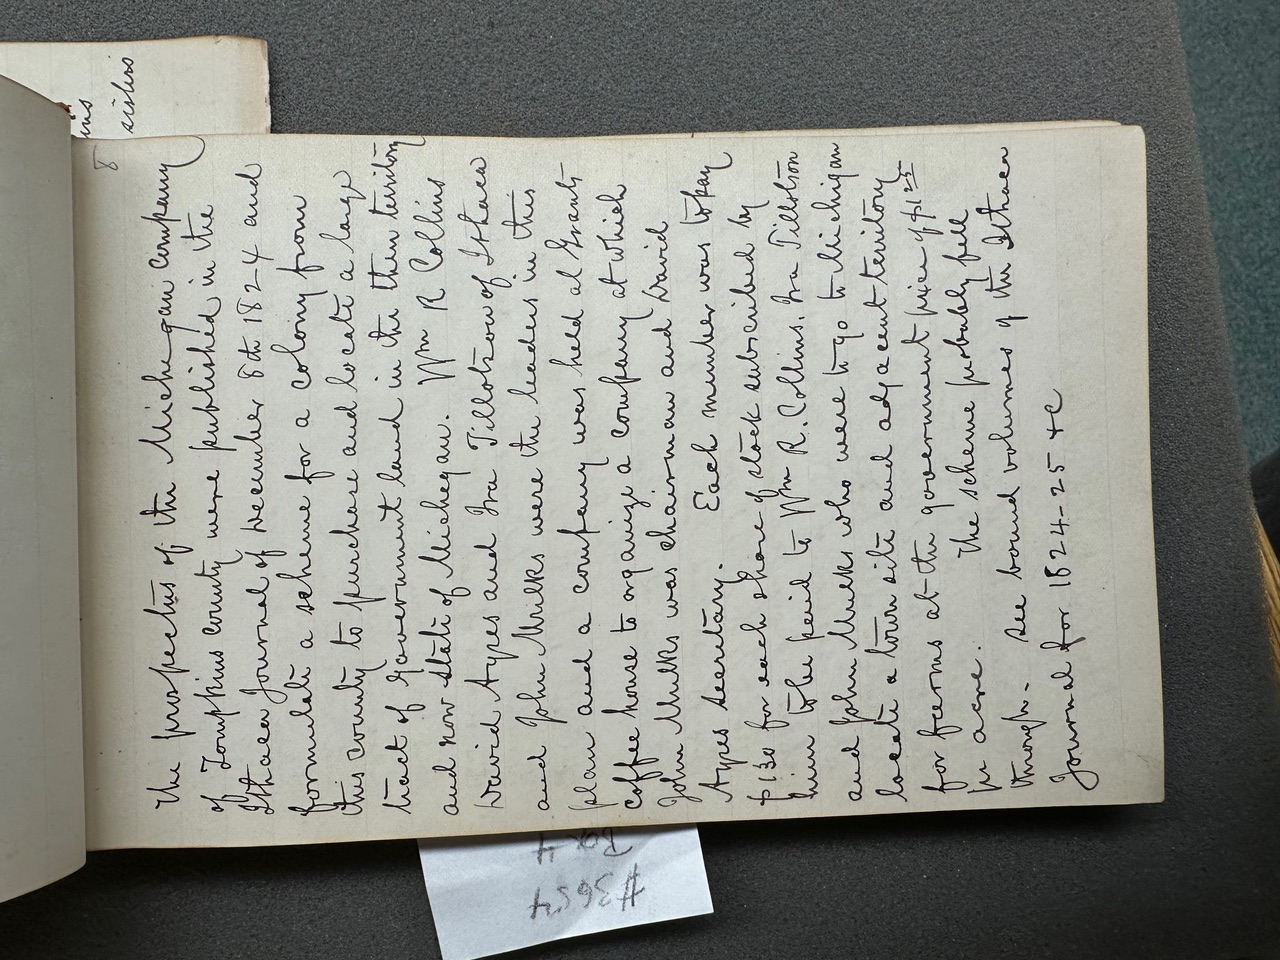 8
The prospectus of the Michegan company
of Tompkins county were published in the
Ithaca Journal of December 8th 1824 and
formulate a scheme for a colony from
this county to purchase and locate a large
tract of Government land in the then territory
and now State of Michegan. Wm R Collins
David Ayres and Ira Tillotson of Ithaca
and John Milks were the leaders in this
plan and a company was held at Grants
coffee house to organize a company at which
John Milks was chairman and David
Ayres secretary. Each member was to pay
$130 for each share of stock subscribed by
him to be paid to Wm R. Collins, Ira Tillotson
and John Milks who were to go to Michigan
locate a town site and adjacent territory
for farms at the government price of $1 25
pr acre. The scheme probably fell
through. See bound volumes of the Ithaca
Journal for 1824-25 &c
sisters
#3654
Box 4